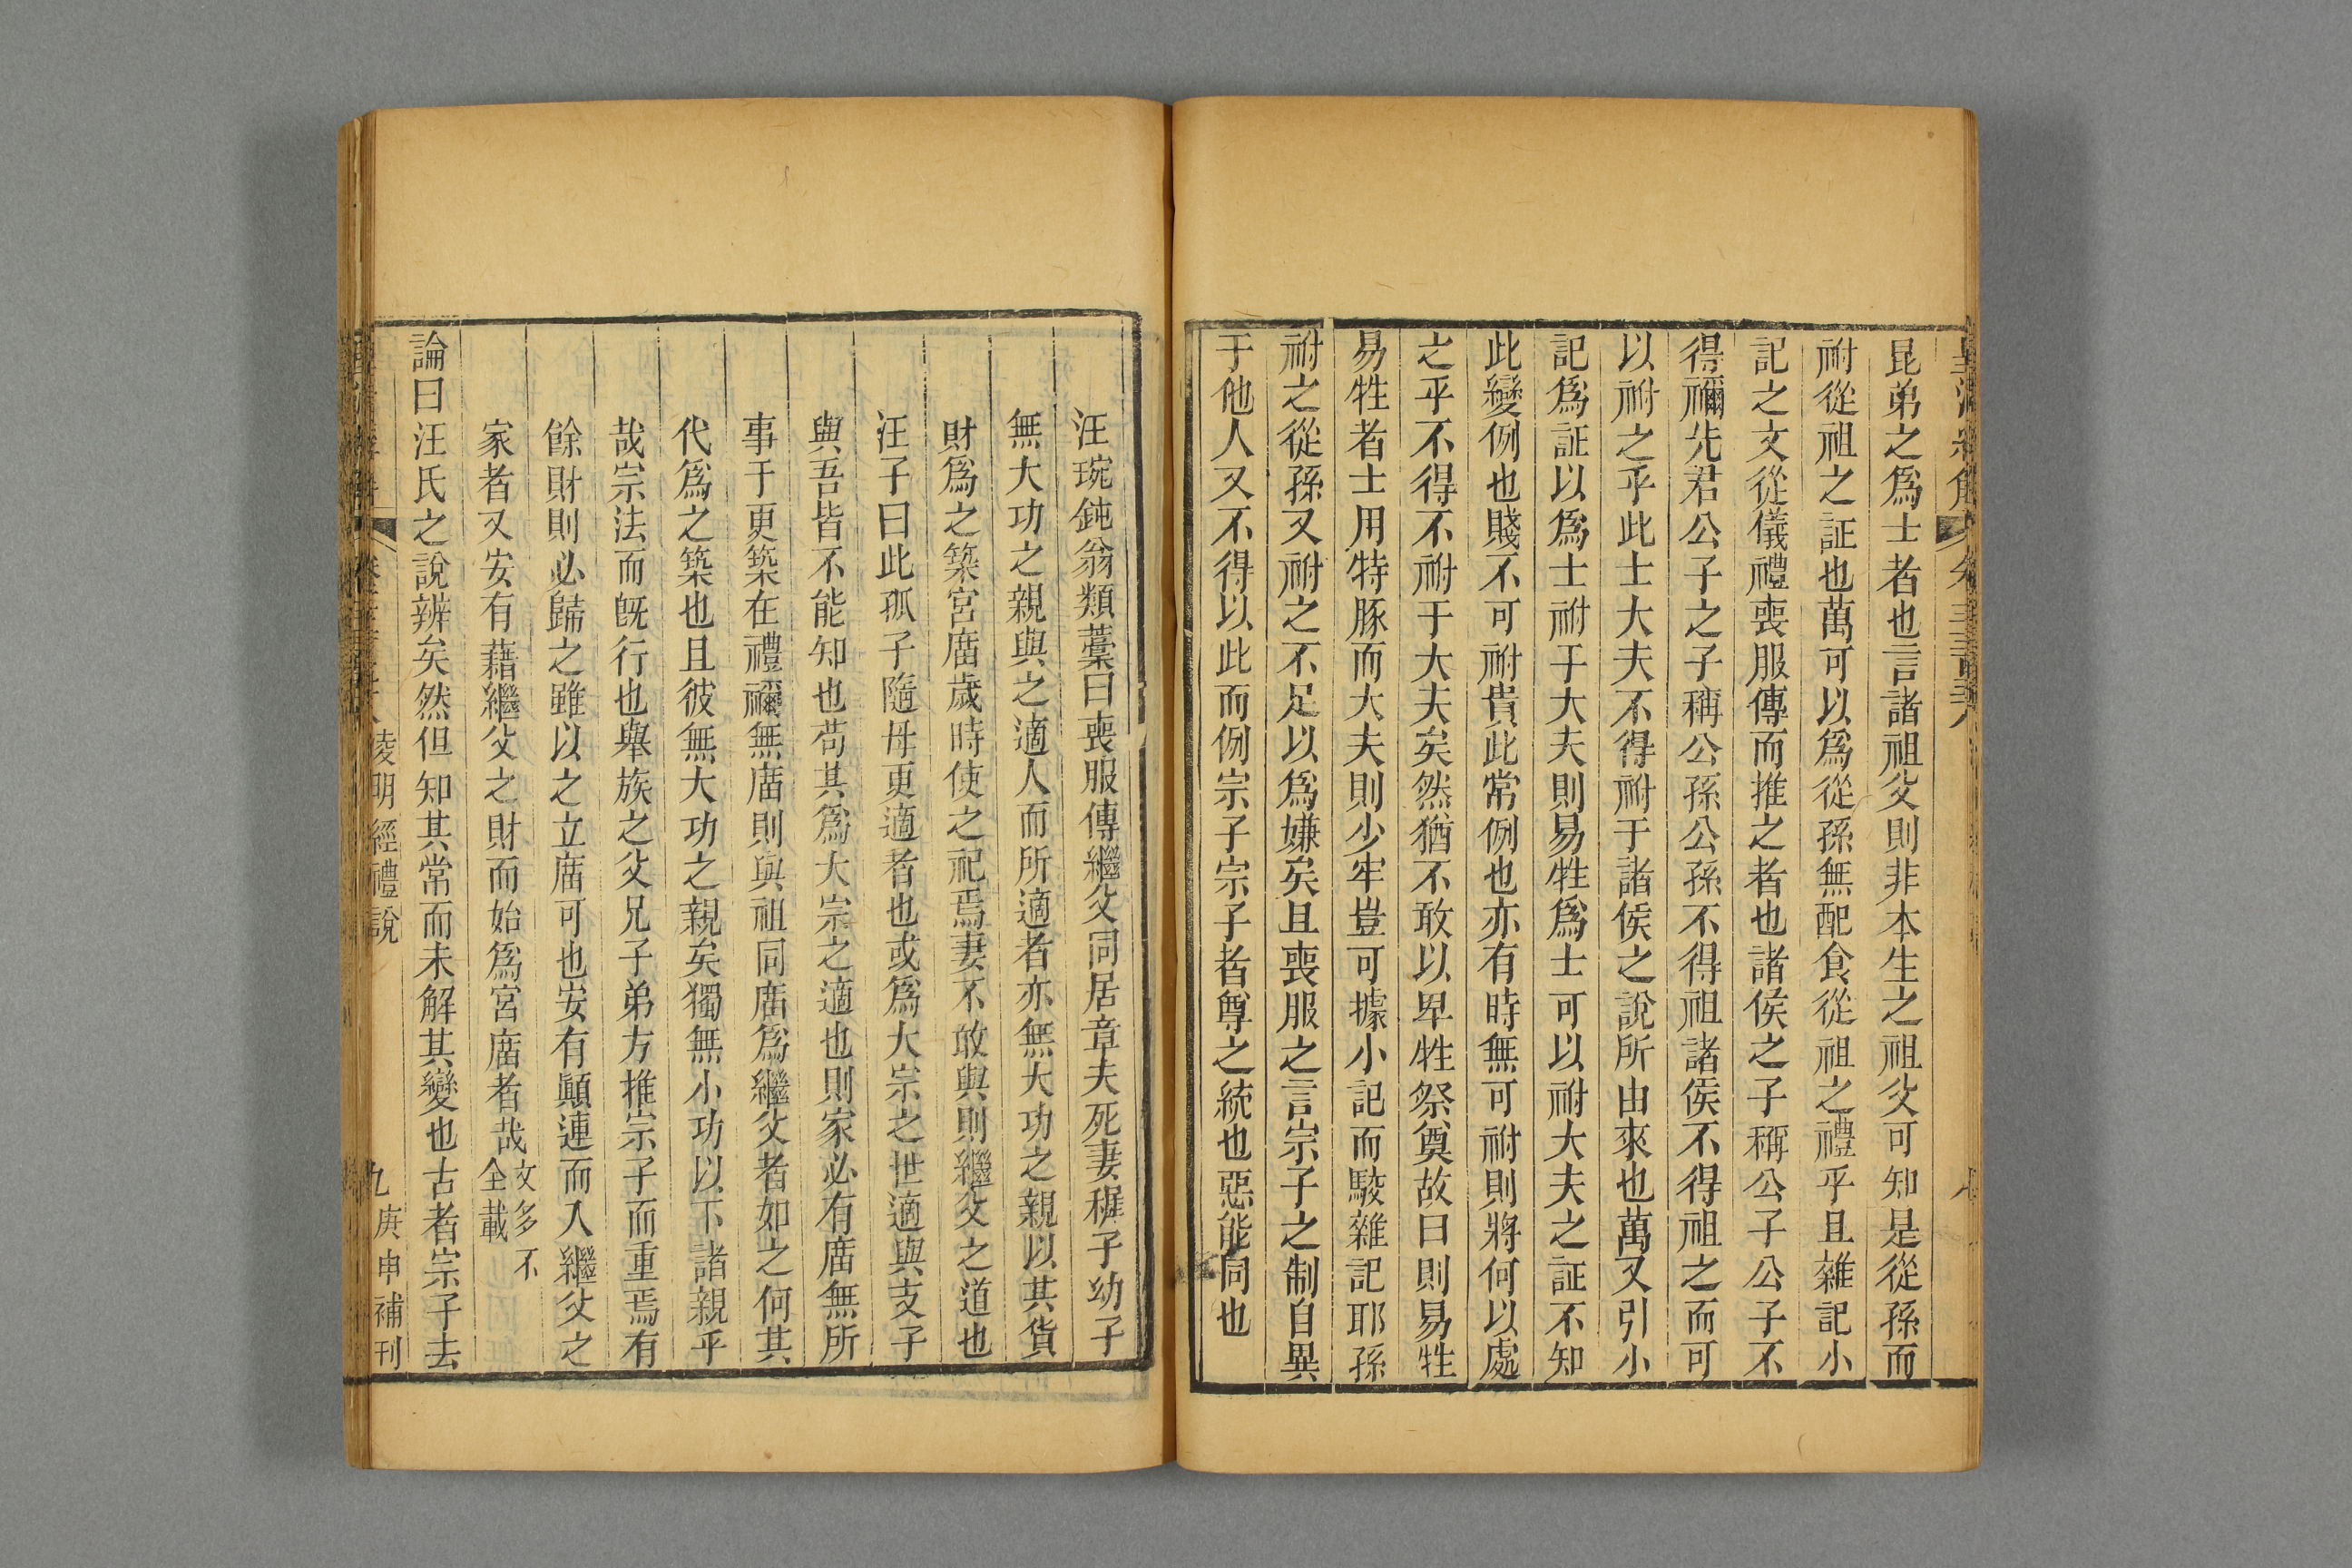 昆弟之爲士者也言諸祖父則非本生之祖父可知是從孫而
祔從祖之証也萬可以爲從孫無配食從祖之禮乎且雜記小
記之文從儀禮喪服傳而推之者也諸侯之子稱公子公子不
得禰先君公子之子稱公孫公孫不得祖諸侯不得祖之而可
以祔之乎此士大夫不得祔于諸侯之說所由來也萬又引小
記爲証以爲士祔于大夫則易牲爲士可以祔大夫之証不知
此變例也賤不可祔貴此常例也亦有時無可祔則將何以處
之乎不得不祔于大夫矣然猶不敢以卑牲祭奠故曰則易牲
易牲者士用特豚而大夫則少牢豈可據小記而駮雜記耶孫
祔之從孫又祔之不足以爲嫌矣且喪服之言宗子之制自異
于他人又不得以此而例宗子宗子者尊之統也惡能同也
汪琬鈍翁類藁曰喪服傳繼父同居章夫死妻穉子幼子
無大功之親與之適人而所適者亦無大功之親以其貨
財爲之築宮廟歲時使之祀焉妻不敢與則繼父之道也
汪子曰此孤子隨母更適者也或爲大宗之世適與支子
與吾皆不能知也苟其爲大宗之適也則家必有廟無所
事于更築在禮禰無廟則與祖同廟爲繼父者如之何其
代爲之築也且彼無大功之親矣獨無小功以下諸親乎
哉宗法而旣行也舉族之父兄子弟方推宗子而重焉有
餘財則必歸之雖以之立廟可也安有顚連而入繼父之
家者又安有藉繼父之財而始爲宮廟者哉文多不
全載
論曰汪氏之說辨矣然但知其常而未解其變也古者宗子去
凌明經禮說
九
庚申補刊